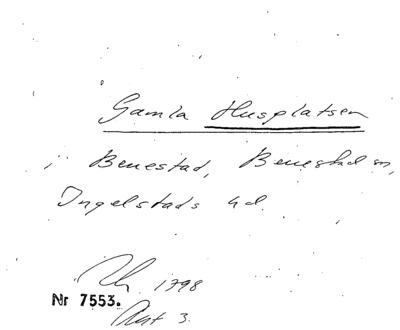 Gamla Husplatsen
i Benestad, Benestad sn,
Ingelstads hd.
1798
Nr 7553.
Akt 3.